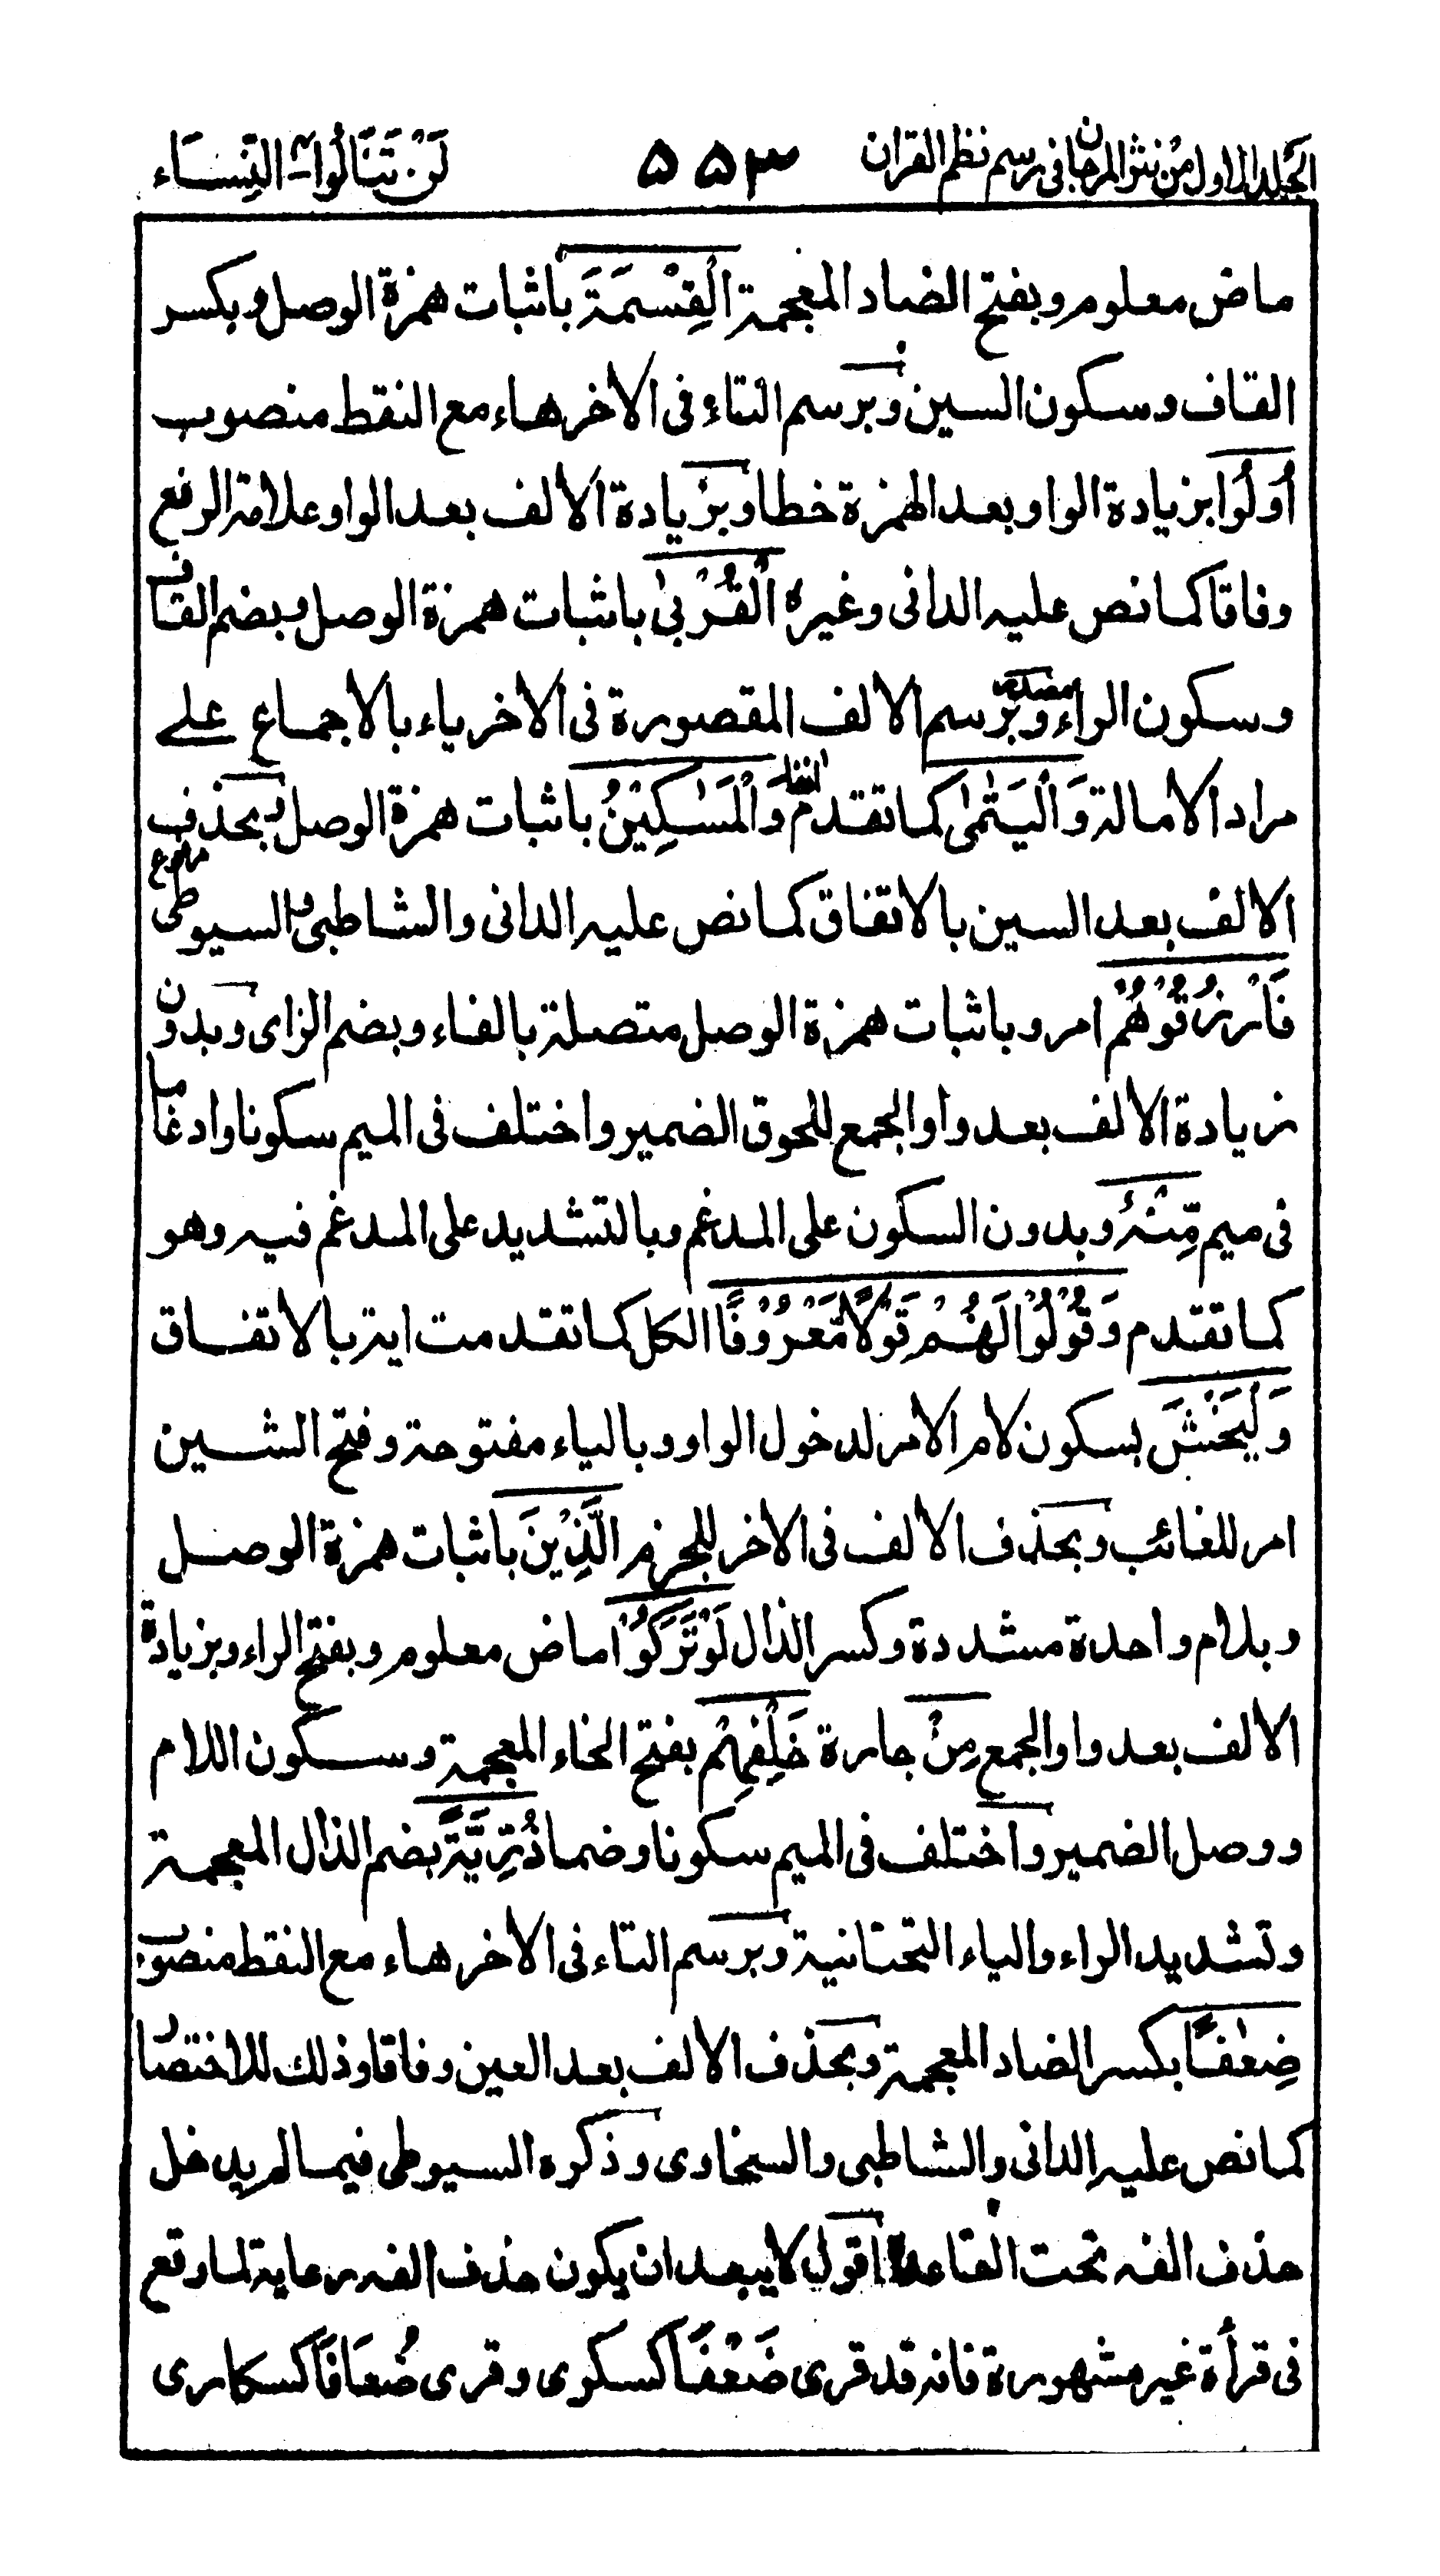 الجلد الاول من نثر المرجان فی رسم نظم القران ۵۵۳ لَنْ تَنَالُوا۔ النِّسَاء
ماض معلوم وبفتح الضاد المعجمة الْقِسْمَةَ باثبات همزة الوصل وبكسر
القاف وسكون السين وبرسم التاء فى الاخر هاء مع النقط منصوب
اُولُوا بزيادة الواو بعد الهمزة خطا وبزيادة الالف بعد الواو علامة الرفع
وفاقا كما نص عليه الدانى وغيره الْقُرْبىٰ باثبات همزة الوصل وبضم القاف
وسكون الراء مصدر وبرسم الالف المقصورة فى الاخر ياء بالاجماع على
مراد الامالة وَالْيَتٰمىٰ كما تقدم انفا وَالْمَسٰكِيْنُ باثبات همزة الوصل وبحذف
الالف بعد السين بالاتفاق كما نص عليه الدانى والشاطبى والسيوطى مرفوع
فَارْزُقُوْهُمْ امر وباثبات همزة الوصل متصلة بالفاء وبضم الزاى وبدون
زيادة الالف بعد واو الجمع للحوق الضمير واختلف فى الميم سكونا وادغاما
فى ميم مِّنْهُ وبدون السكون على المدغم وبالتشديد على المدغم فيه وهو
كما تقدم وَقُوْلُوْا لَهُمْ قَوْلًا مَّعْرُوْفًا الكل كما تقدمت اية بالاتفاق
وَلْيَخْشَ بسكون لام الامر لدخول الواو وبالياء مفتوحة وفتح الشين
امر للغائب وبحذف الالف فى الاخر للجزم الَّذِيْنَ باثبات همزة الوصل
وبلام واحدة مشددة وكسر الذال لَوْ تَرَكُوْا ماض معلوم وبفتح الراء وبزيادة
الالف بعد واو الجمع مِنْ جارة خَلْفِهِمْ بفتح الخاء المعجمة وسكون اللام
ووصل الضمير واختلف فى الميم سكونا وضما ذُرِّيَّةً بضم الذال المعجمة
وتشديد الراء والياء التحتانية وبرسم التاء فى الاخر هاء مع النقط منصوب
ضِعٰفًا بكسر الضاد المعجمة وبحذف الالف بعد العين وفاقا وذلك للاختصار
كما نص عليه الدانى والشاطبى والسخاوى وذكره السيوطى فيما لم يدخل
حذف الفه تحت القاعدة اقول لا يبعد ان يكون حذف الفه رعاية لما وقع
فى قرأة غير مشهورة فانه قد قرى ضَعْفًا كسكوى وقرى ضُعَافًا كسكارى